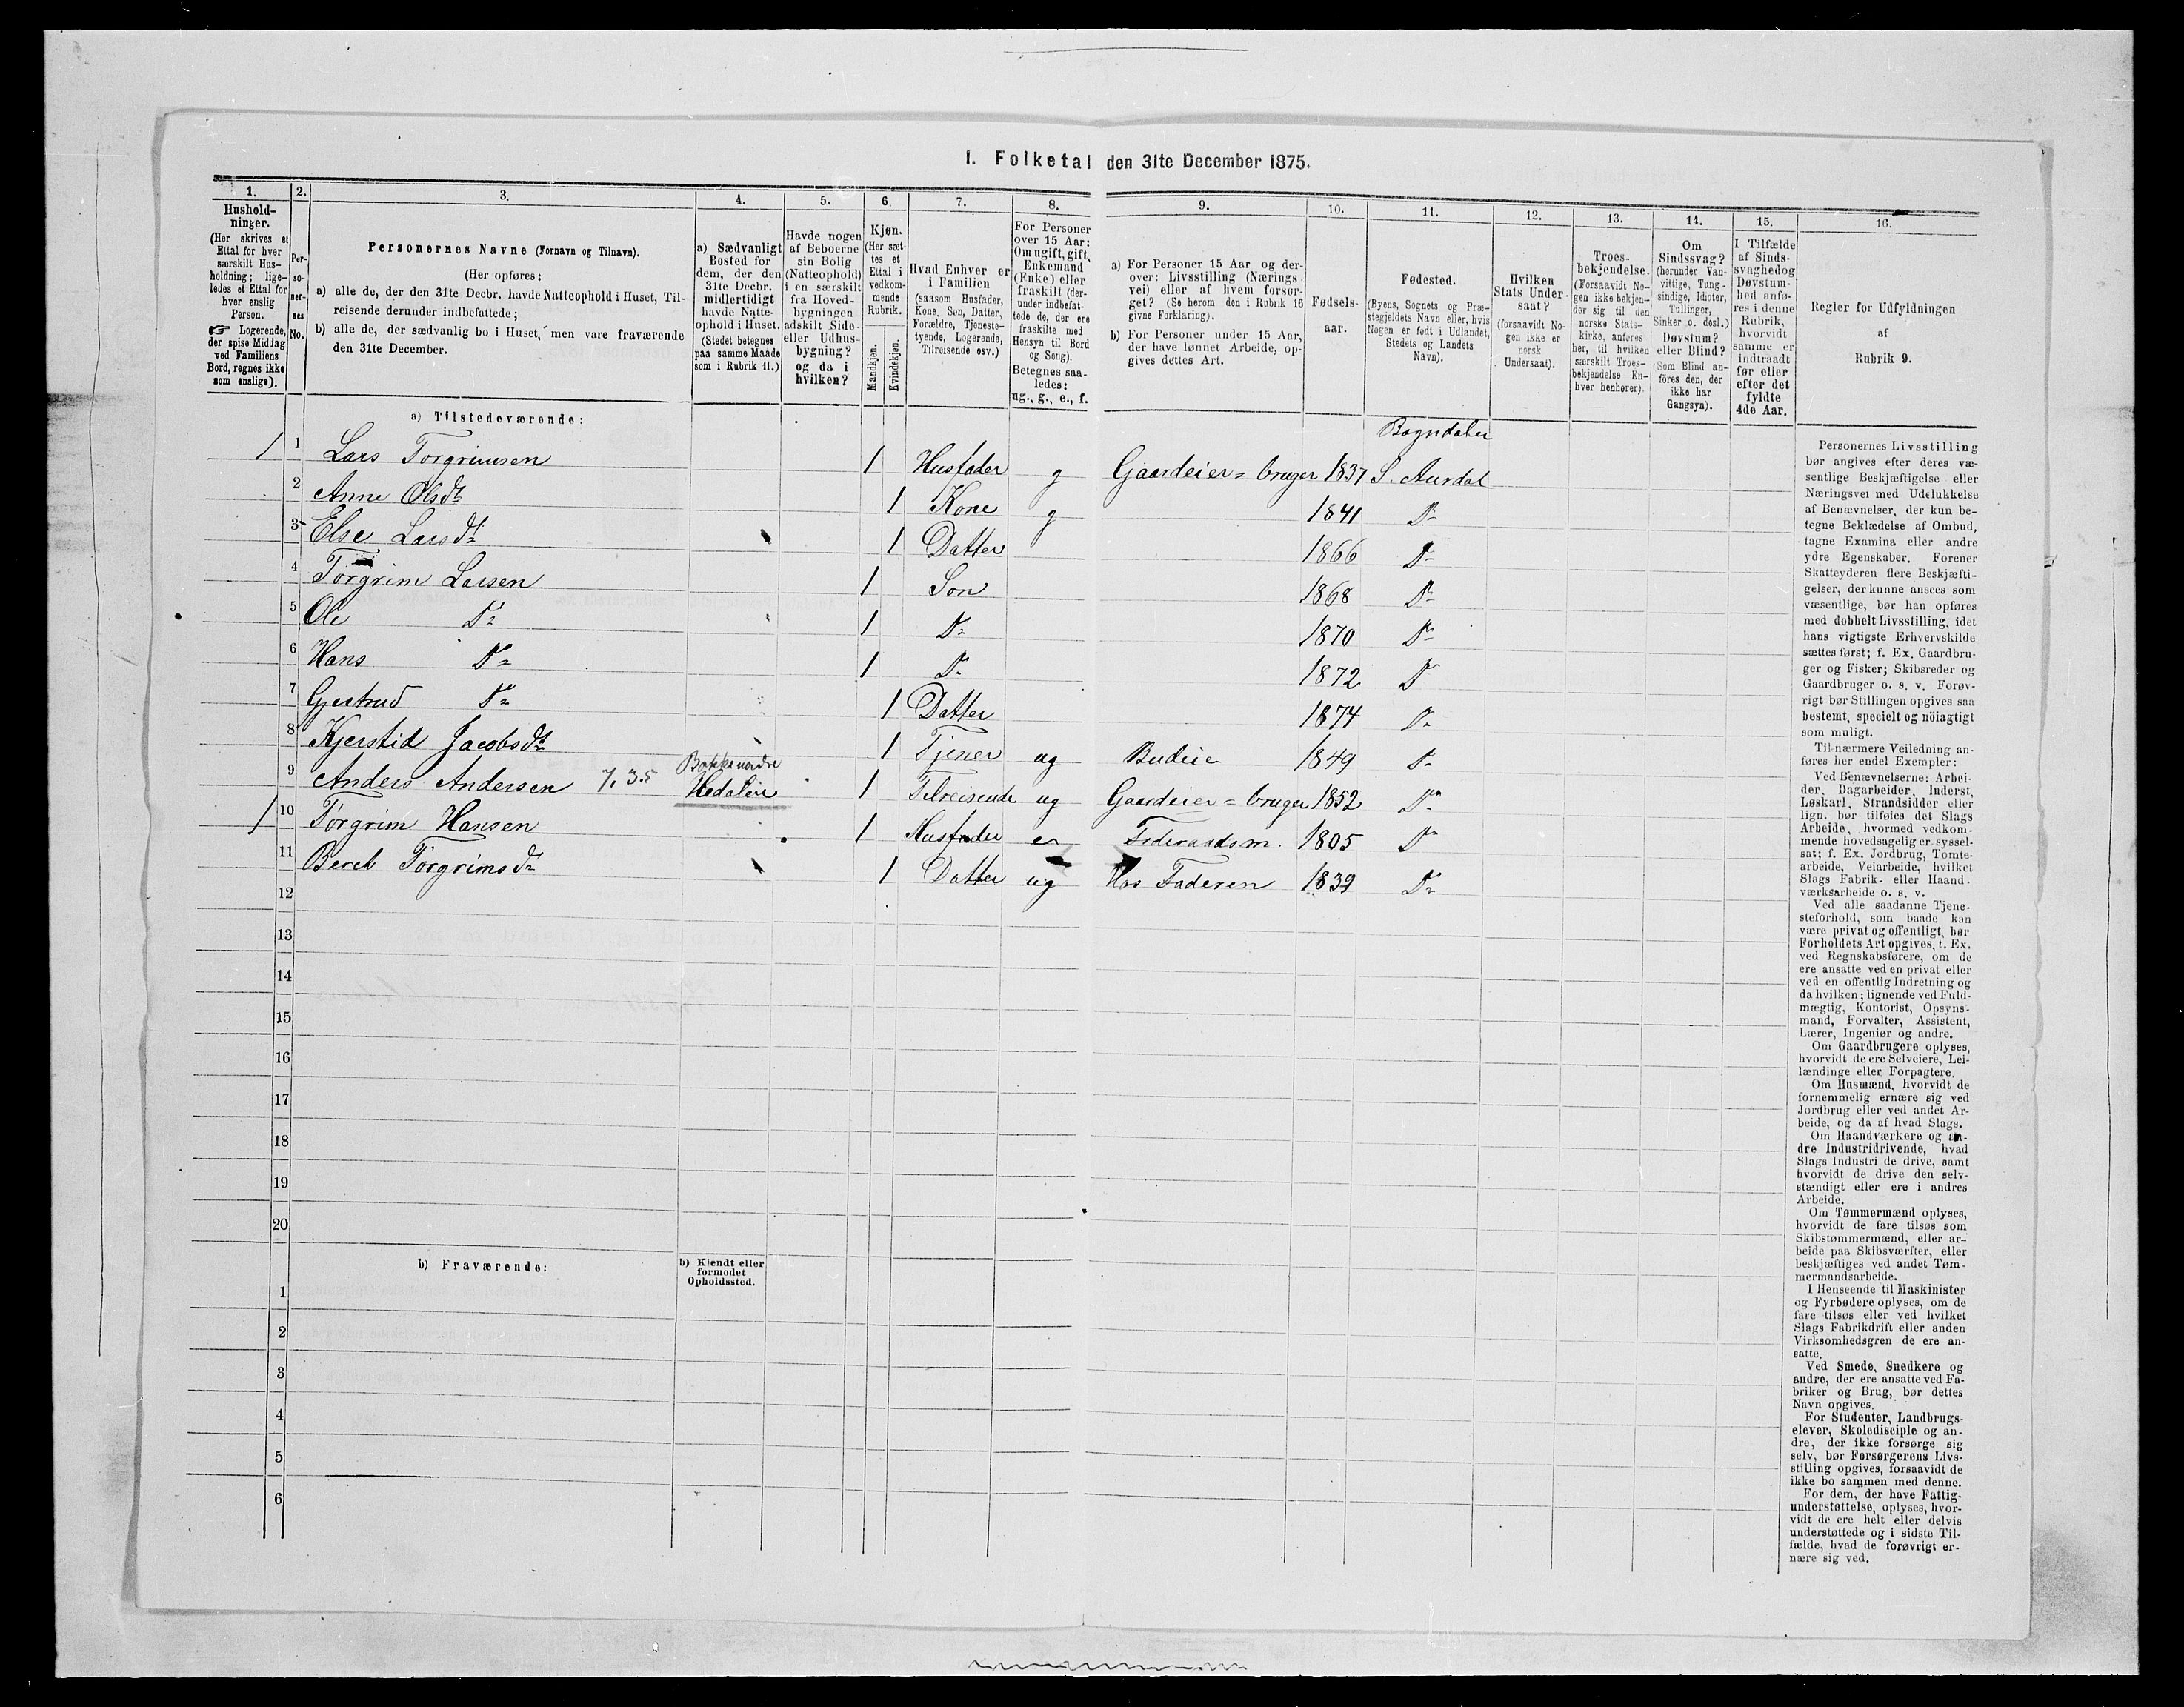 I. Folketal den 31te December 1875.
1. 2. 3. 4. 5. 6. 7. 8. 9. 10. 11. 12. 13. 14. 15. 16.
Hushold-
ninger.
(Her skrives et
Ettal for hver
særskilt Hus-
holdning; lige-
ledes et Ettal for
hver enslig
Person.
☞ Logerende,
der spise Middag
ved Familiens
Bord, regnes ikke
som enslige).
Per-
so-
ner-
nes
No.
Personernes Navne (Fornavn og Tilnavn).
(Her opføres:
a) alle de, der den 31te Decbr. havde Natteophold i Huset, Til-
reisende derunder indbefattede;
b) alle de, der sædvanlig bo i Huset, men vare fraværende
den 31te December.
a) Sædvanligt
Bosted for
dem, der den
31te Decbr.
midlertidigt
havde Natte-
ophold i Huset.
(Stedet betegnes
paa samme Maade
som i Rubrik 11.)
Havde nogen
af Beboerne
sin Bolig
(Natteophold)
i en særskilt
fra Hoved-
bygningen
adskilt Side-
eller Udhus-
bygning?
og da i
hvilken?
Kjøn.
(Her sæt-
tes et
Ettal i
vedkom-
mende
Rubrik.
Mandkjøn.
Kvindekjøn.
Hvad Enhver er
i Familien
(saasom Husfader,
Kone, Søn, Datter,
Forældre, Tjeneste-
tyende, Logerende,
Tilreisende osv.)
For Personer
over 15 Aar:
Om ugift, gift,
Enkemand
(Enke) eller
fraskilt (der-
under indbefat-
tede de, der ere
fraskilte med
Hensyn til Bord
og Seng).
Betegnes saa-
ledes:
ug., g., e., f.
a) For Personer 15 Aar og der-
over: Livsstilling (Nærings-
vei) eller af hvem forsør-
get? (Se herom den i Rubrik 16
givne Forklaring).
b) For Personer under 15 Aar,
der have lønnet Arbeide, op-
gives dettes Art.
Fødsels-
aar.
Fødested.
(Byens, Sognets og Præ-
stegjeldets Navn eller, hvis
Nogen er født i Udlandet,
Stedets og Landets
Navn).
Hvilken
Stats Under-
saat?
(forsaavidt No-
gen ikke er
norsk
Undersaat).
Troes-
bekjendelse.
(Forsaavidt No-
gen ikke bekjen-
der sig til den
norske Stats-
kirke, anføres
her, til hvilken
særskilt Troes-
bekjendelse En-
hver henhører).
Om
Sindssvag?
(herunder Van-
vittige, Tung-
sindige, Idioter,
Tullinger,
Sinker o. desl.)
Døvstum?
eller Blind?
(Som Blind an-
føres den, der
ikke har
Gangsyn).
I Tilfælde
af Sinds-
svaghed og
Døvstum-
hed anfø-
res i denne
Rubrik,
hvorvidt
samme er
indtraadt
før eller
efter det
fyldte
4de Aar.
Regler for Udfyldningen
af
Rubrik 9.
a) Tilstedeværende:
Bagndalen
1 1 Lars Torgrimsen 1 Husfader g Gaardeier = bruger 1837 S. Aurdal
2 Anne Olsdt 1 Kone g 1841 Do
3 Else Larsdt 1 Datter 1866 Do
4 Torgrim Larsen 1 Son 1868 Do
5 Ole Do 1 Do 1870 Do
6 Hans Do 1 Do 1872 Do
7 Gjertrud Do 1 Datter 1874 Do
8 Kjerstid Jacobsdt 1 Tjener ug Budeie 1849 Do
9 Anders Andersen 7.35 Bakke nordre Hedalen 1 Tilreisende ug Gaardeier = bruger 1852 Do
1 10 Torgrim Hansen 1 Husfader e Föderaadsm. 1805 Do
11 Beret Torgrimsdt 1 Datter ug Hos Faderen 1839 Do
12
13
14
15
16
17
18
19
20
b) Fraværende:
b) Kjendt eller
formodet
Opholdssted.
1
2
3
4
5
6
Personernes Livsstilling
bør angives efter deres væ-
sentlige Beskjæftigelse eller
Næringsvei med Udelukkelse
af Benævnelser, der kun be-
tegne Beklædelse af Ombud,
tagne Examina eller andre
ydre Egenskaber. Forener
Skatteyderen flere Beskjæfti-
gelser, der kunne ansees som
væsentlige, bør han opføres
med dobbelt Livsstilling, idet
hans vigtigste Erhvervskilde
sættes først; f. Ex. Gaardbru-
ger og Fisker; Skibsreder og
Gaardbruger o. s. v. Forøv-
rigt bør Stillingen opgives saa
bestemt, specielt og nöiagtigt
som muligt.
Til nærmere Veiledning an-
føres her endel Exempler:
Ved Benævnelserne: Arbei-
der, Dagarbeider, Inderst,
Løskarl, Strandsidder eller
lign. bør tilføies det Slags
Arbeide, hvormed vedkom-
mende hovedsagelig er syssel-
sat; f. Ex. Jordbrug, Tomte-
arbeide, Veiarbeide, hvilket
Slags Fabrik- eller Haand-
værksarbeide o. s. v.
Ved alle saadanne Tjene-
steforhold, som baade kan
være privat og offentligt, bør
Forholdets Art opgives, t. Ex.
ved Regnskabsførere, om de
ere ansatte ved en privat eller
ved en offentlig Indretning og
da hvilken; lignende ved Fuld-
mægtig, Kontorist, Opsyns-
mand, Forvalter, Assistent,
Lærer, Ingeniør og andre.
Om Gaardbrugere oplyses,
hvorvidt de ere Selveiere, Lei-
lændinge eller Forpagtere.
Om Husmænd, hvorvidt de
fornemmelig ernære sig ved
Jordbrug eller ved andet Ar-
beide, og da af hvad Slags.
Om Haandværkere og an-
dre Industridrivende, hvad
Slags Industri de drive, samt
hvorvidt de drive den selv-
stændigt eller ere i andres
Arbeide.
Om Tømmermænd oplyses,
hvorvidt de fare tilsøs som
Skibstømmermænd, eller ar-
beide paa Skibsværfter, eller
beskjæftiges ved andet Tøm-
mermandsarbeide.
I Henseende til Maskinister
og Fyrbødere oplyses, om de
fare tilsøs eller ved hvilket
Slags Fabrikdrift eller anden
Virksomhedsgren de ere an-
satte.
Ved Smede, Snedkere og
andre, der ere ansatte ved Fa-
briker og Brug, bør dettes
Navn opgives.
For Studenter, Landbrugs-
elever, Skoledisciple og an-
dre, der ikke forsørge sig
selv, bør Forsørgerens Livs-
stilling opgives, forsaavidt de
ikke bo sammen med denne.
For dem, der have Fattig-
understøttelse, oplyses, hvor-
vidt de ere helt eller delvis
understøttede og i sidste Til-
fælde, hvad de forøvrigt er-
nære sig ved.